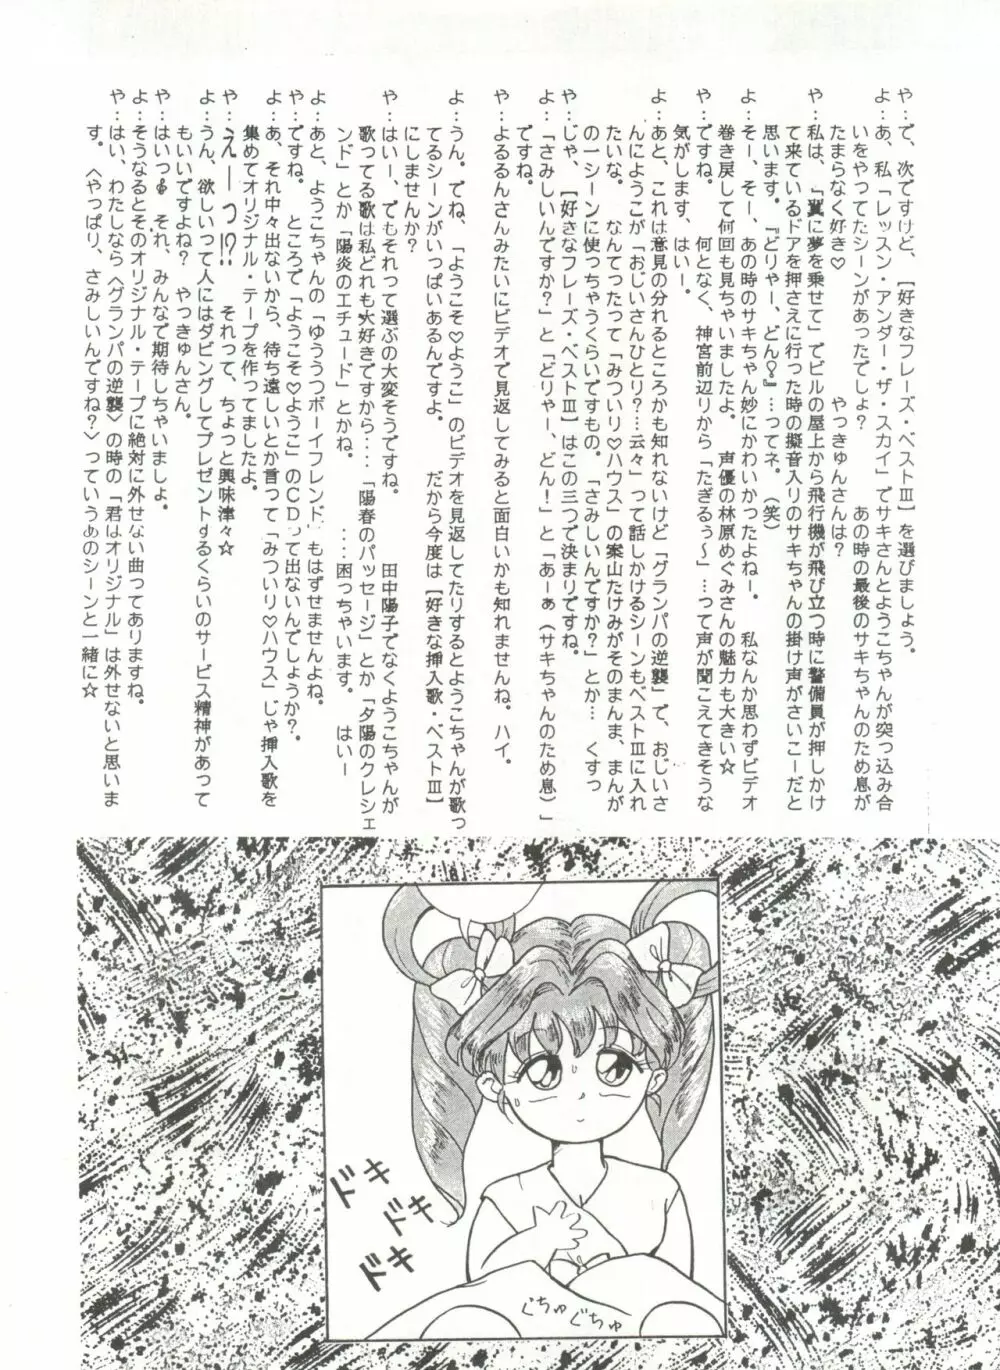 や‥で、次ですけど、【好きなフレーズ・ベストⅢ】を選びましょう。
よ‥あ、私「レッスン・アンダー・ザ・スカイ」でサキさんとようこちゃんが突っ込み合
いをやってたシーンがあったでしょ？　あの時の最後のサキちゃんのため息が
たまらなく好き♡　やっきゅんさんは？
や‥私は、『翼に夢を乗せて』でビルの屋上から飛行機が飛び立つ時に警備員が押しかけ
て来ているドアを押さえに行った時の擬音入りのサキちゃんの掛け声がさいこーだと
思います。『どりゃー、どん♀』…ってネ。（笑）
よ‥そー、そー、あの時のサキちゃん妙にかわいかったよねー。　私なんか思わずビデオ
巻き戻して何回も見ちゃいましたよ。　声優の林原めぐみさんの魅力も大きい☆
や‥ですね。　何となく、神宮前辺りから「たぎるぅ～」…って声が聞こえてきそうな
気がします、はい―。
よ‥あと、これは意見の分れるところかも知れないけど「グランパの逆襲」で、おじいさ
んにようこが「おじいさんひとり？…云々」って話しかけるシーンもベストⅢに入れ
たいな。　なんてったって「みついり♡ハウス」の案山たけみがそのまんま、まんが
の一シーンに使っちゃうくらいですもの。「さみしいんですか？」とか…　くすっ
や‥じゃ、【好きなフレーズ・ベストⅢ】はこの三つで決まりですね。
よ‥「さみしいんですか？」と「どりゃー、どん！」と「あーぁ（サキちゃんのため息）」
ですね。
や‥よるるんさんみたいにビデオで見返してみると面白いかも知れませんね。ハイ。
よ‥うん。でね、「ようこそ♡ようこ」のビデオを見返してたりするとようこちゃんが歌っ
てるシーンがいっぱいあるんですよ。　だから今度は【好きな挿入歌・ベストⅢ】
にしませんか？
や‥はいー、でもそれって選ぶの大変そうですね。　田中陽子でなくようこちゃんが
歌ってる歌は私どれも大好きですから…「陽春のパッセージ」とか「夕陽のクレシェ
ンド」とか「陽炎のエチュード」とかね。　…困っちゃいます。　はいー
よ‥あと、ようこちゃんの「ゆううつボーイフレンド」もはずせませんよね。
や‥ですね。　ところで「ようこそ♡ようこ」のＣＤって出ないんでしょうか？。
よ‥あ、それ中々出ないから、待ち遠しいとか言って「みついり♡ハウス」じゃ挿入歌を
集めてオリジナル・テープを作ってましたよ。
や‥えーっ!?　それって、ちょっと興味津々☆
よ‥うん、欲しいって人にはダビングしてプレゼントするくらいのサービス精神があって
もいいですよね？　やっきゅんさん。
や‥はいっ♪　それ、みんなで期待しちゃいましょ。
よ‥そうなるとそのオリジナル・テープに絶対に外せない曲ってありますね。
や‥はい、わたしなら〈グランパの逆襲〉の時の「君はオリジナル」は外せないと思いま
す。〈やっぱり、さみしいんですね？〉っていうあのシーンと一緒に☆
ドキ
ドキ
ドキ
ぐちゅぐちゅ